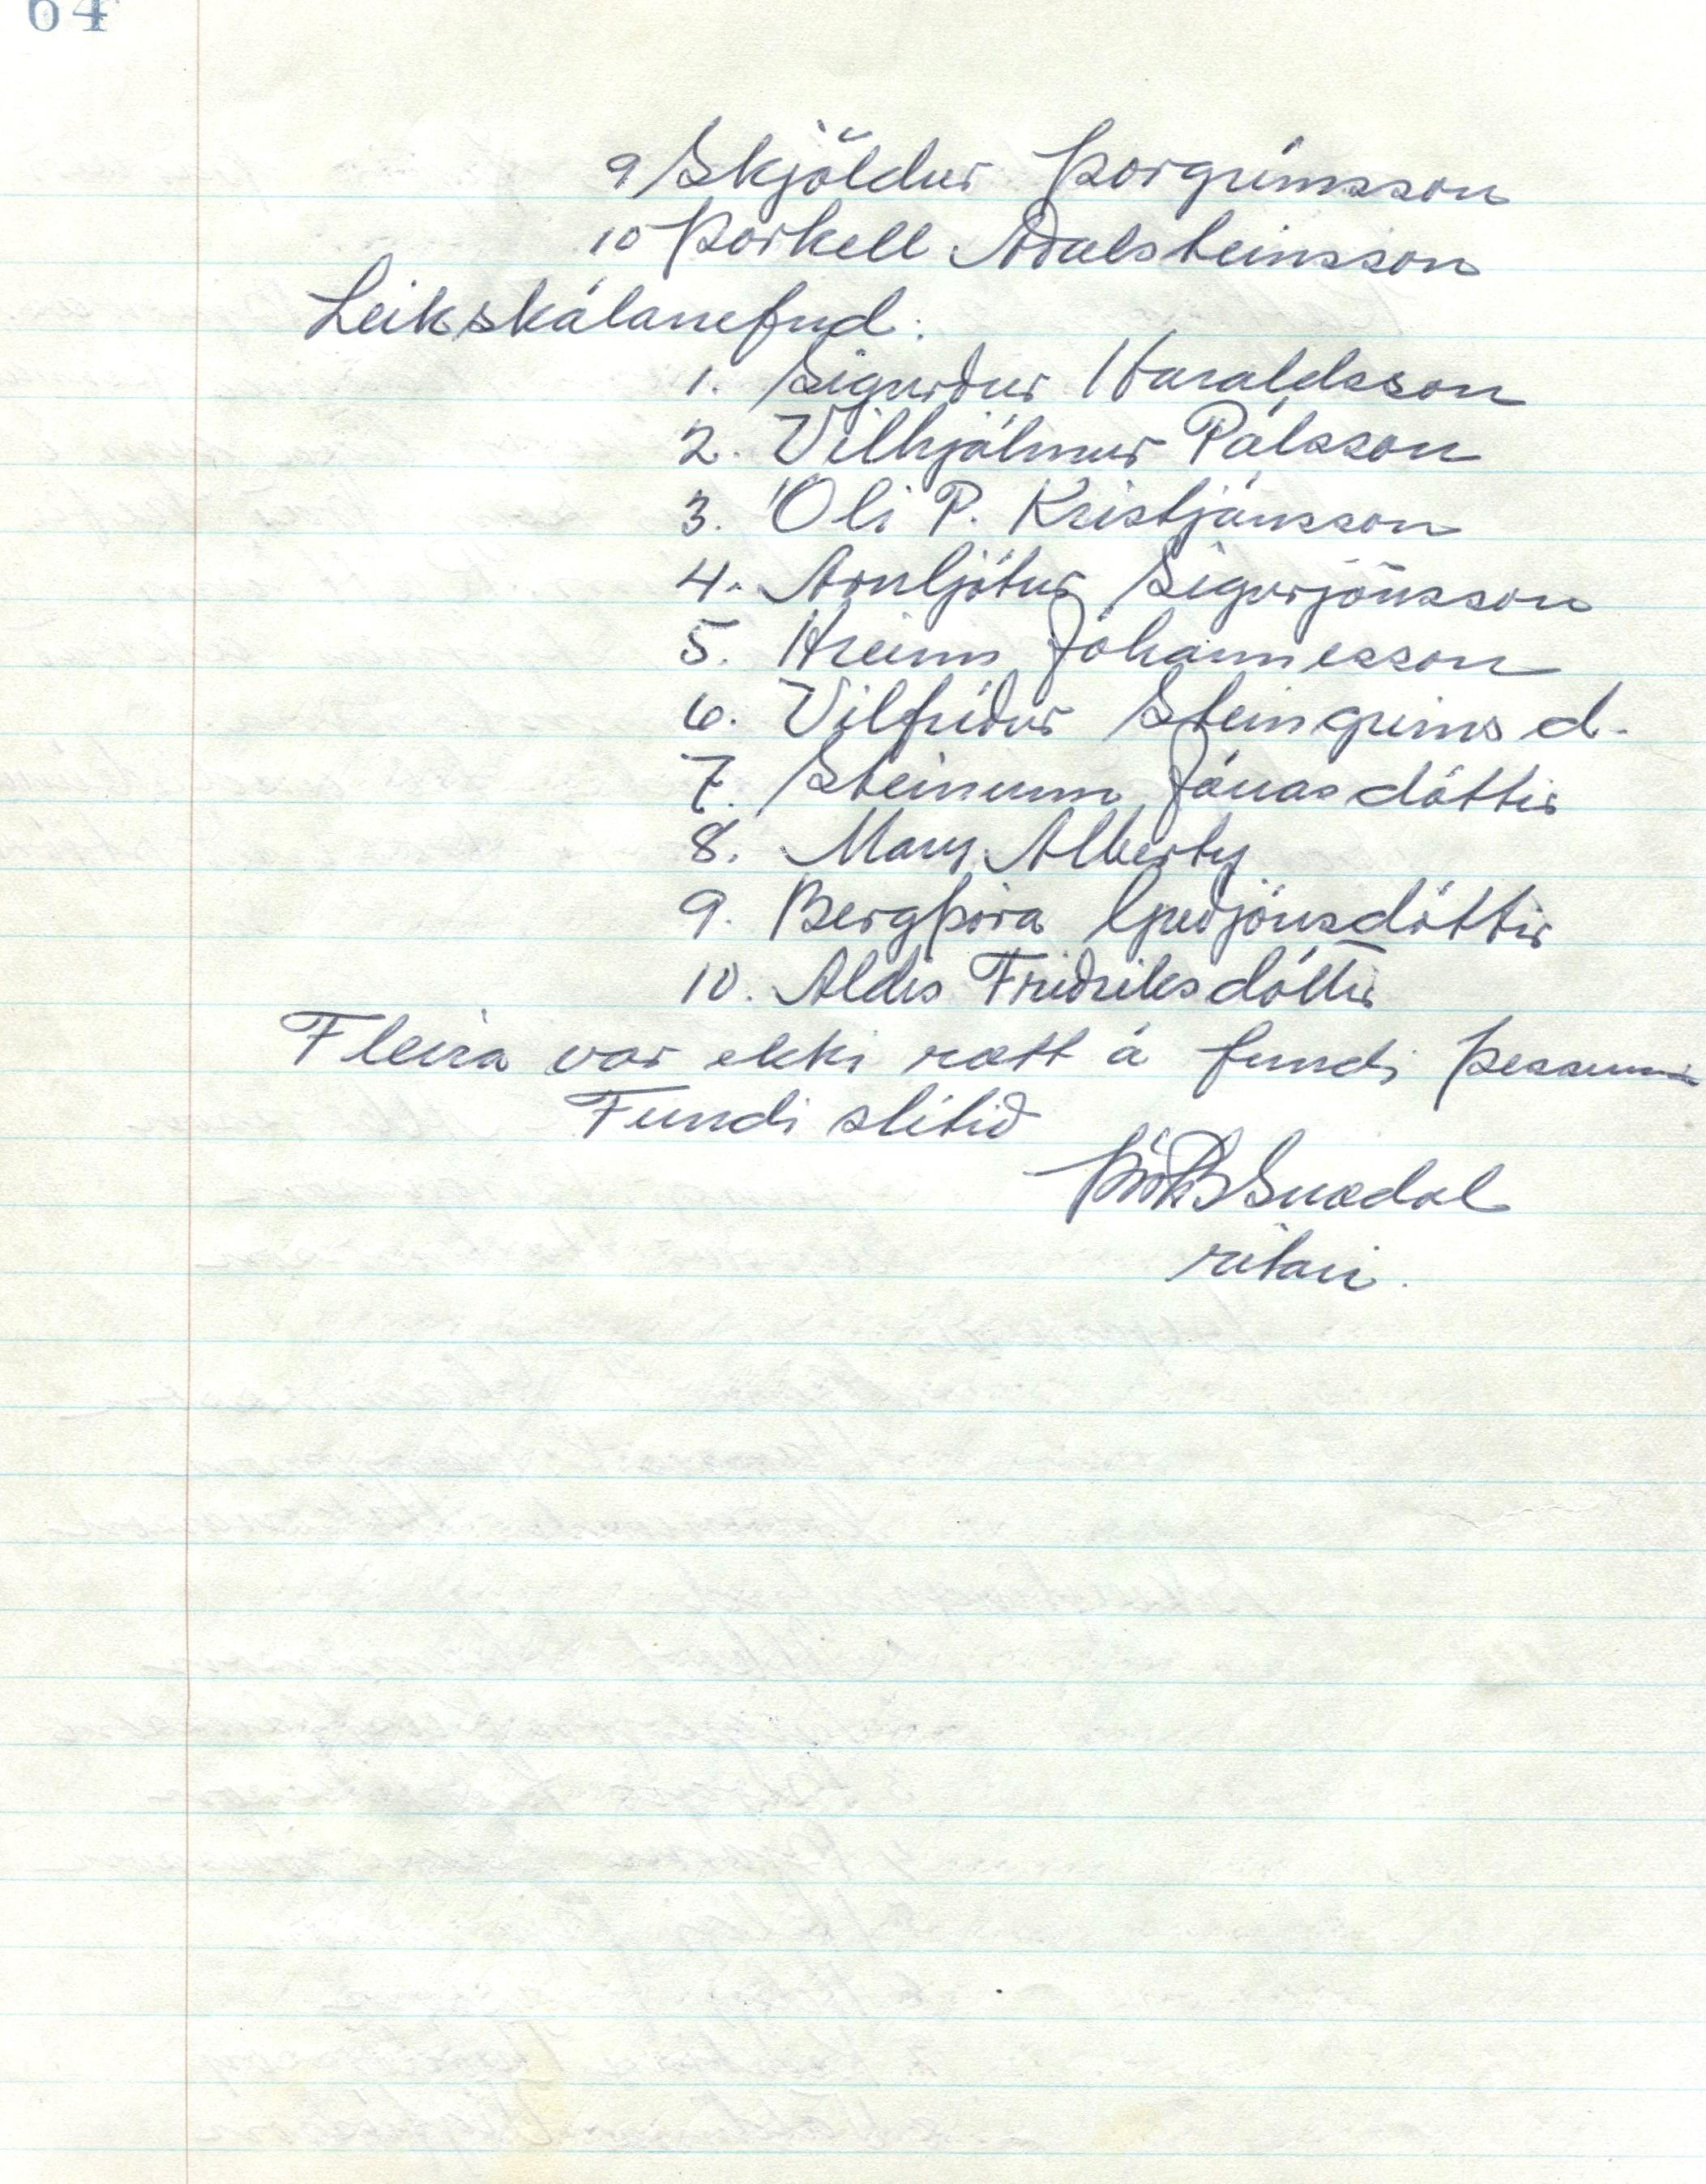 64
9 Skjöldur Þorgrímsson
10 Þorkell Aðalsteinsson
Leikskálanefnd.
1. Sigurður Haraldsson
2. Vilhjálmur Pálsson
3. Óli P. Kristjánsson
4. Arnljótur Sigurjónsson
5. Hreinn Jóhannesson
6. Vilfríður Steingrímsd.
7. Steinunn Jónasdóttir
8. Mary Alberty
9. Bergþóra Guðjónsdóttir
10. Aldís Friðriksdóttir
Fleira var ekki rætt á fundi þessum
Fundi slitið
Snædal
ritari.